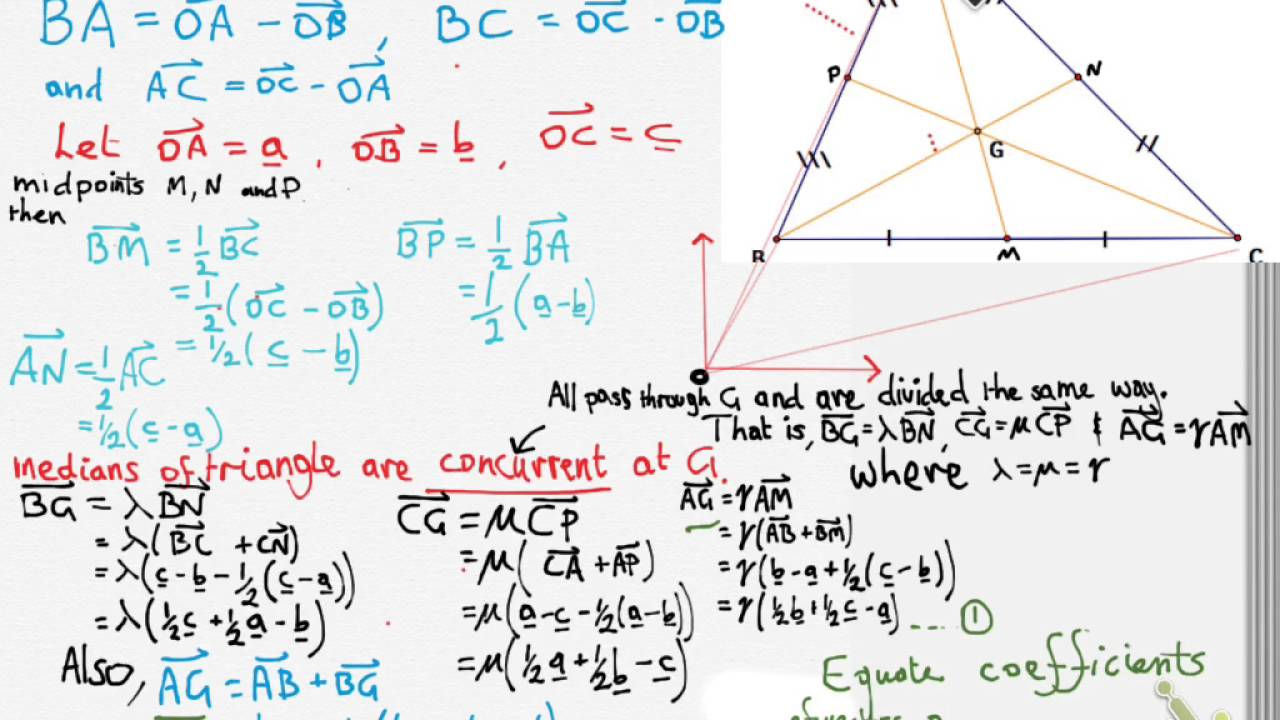 BA = OA - OB , BC = OC - OB
and AC = OC - OA
Let OA = a , OB = b , OC = c
midpoints M, N and P
then
BM = 1/2 BC
= 1/2 (OC - OB)
= 1/2 (c - b)
BP = 1/2 BA
= 1/2 (a - b)
AN = 1/2 AC
= 1/2 (c - a)
P
N
G
B
M
C
O
All pass through G and are divided the same way.
That is, BG = λBN, CG = μCP & AG = γAM
where λ = μ = γ
medians of triangle are concurrent at G.
BG = λBN
= λ(BC + CN)
= λ(c - b - 1/2 (c - a))
= λ(1/2 c + 1/2 a - b)
CG = μCP
= μ(CA + AP)
= μ(a - c - 1/2 (a - b))
= μ(1/2 a + 1/2 b - c)
AG = γAM
= γ(AB + BM)
= γ(b - a + 1/2 (c - b))
= γ(1/2 b + 1/2 c - a) .... ①
Also, AG = AB + BG
Equate coefficients